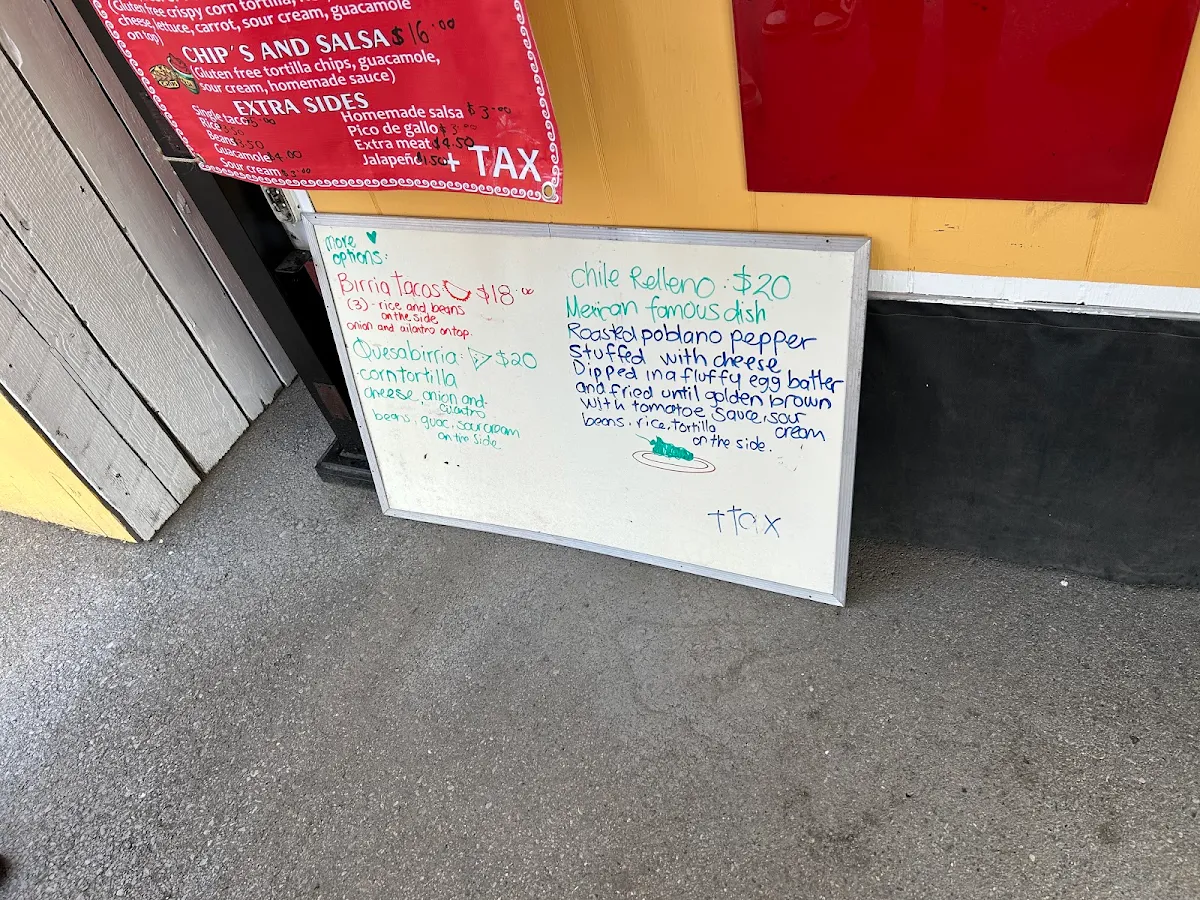 (Gluten free crispy corn tortilla,
cheese, lettuce, carrot, sour cream, guacamole
on top)
CHIP'S AND SALSA $16.00
(Gluten free tortilla chips, guacamole,
sour cream, homemade sauce)
EXTRA SIDES
Single taco 5.00
Rice 3.50
Beans 3.50
Guacamole $4.00
Sour cream $3.00
Homemade salsa $3.00
Pico de gallo $3.00
Extra meat $4.50
Jalapeño 1.50
+ TAX
more
options:
Birria tacos $18.00
(3) - rice and beans
on the side
onion and cilantro on top.
Quesabirria: $20
corn tortilla
cheese, onion and
cilantro
beans, guac, sour cream
on the side
Chile Relleno: $20
Mexican famous dish
Roasted poblano pepper
Stuffed with cheese
Dipped in a fluffy egg batter
and fried until golden brown
with tomatoe sauce, sour
cream
beans, rice, tortilla
on the side.
+tax